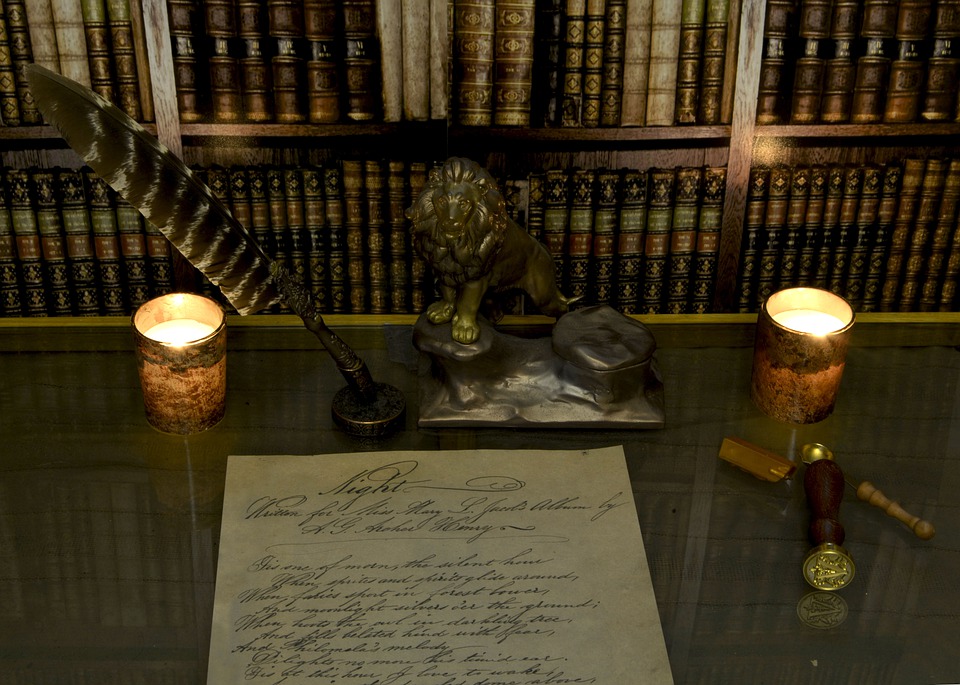 Night
Written for Miss Mary L. Album by
A. G. Henry
'Tis one of morn, the silent hour
When sprites and spirits glide around,
When fairies sport in forest bower,
And moonlight silvers o'er the ground;
When hoots the owl in darkling tree,
And fills belated hind with fear,
And Philomela's melody
Delights no more his timid ear.
'Tis at this hour of love to wake
above,